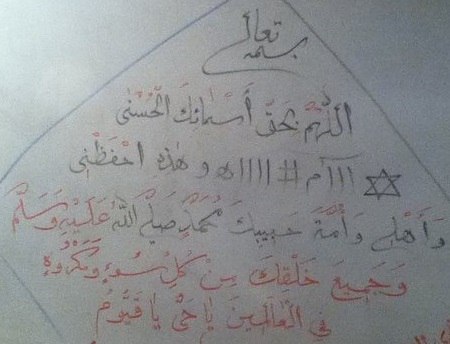 بسمه تعالى
اللّٰهُمَّ بِحَقِّ أَسْمَائِكَ الْحُسْنٰى
✡ ااا م # اااا ه و هٰذِهِ احْفَظْنِي
وَأَهْلِي وَأُمَّةَ حَبِيبِكَ مُحَمَّدٍ صَلَّى اللّٰهُ عَلَيْهِ وَسَلَّمَ
وَجَمِيعَ خَلْقِكَ مِنْ كُلِّ سُوءٍ وَمَكْرُوهٍ
فِي الْعَالَمِينَ يَا حَيُّ يَا قَيُّومُ